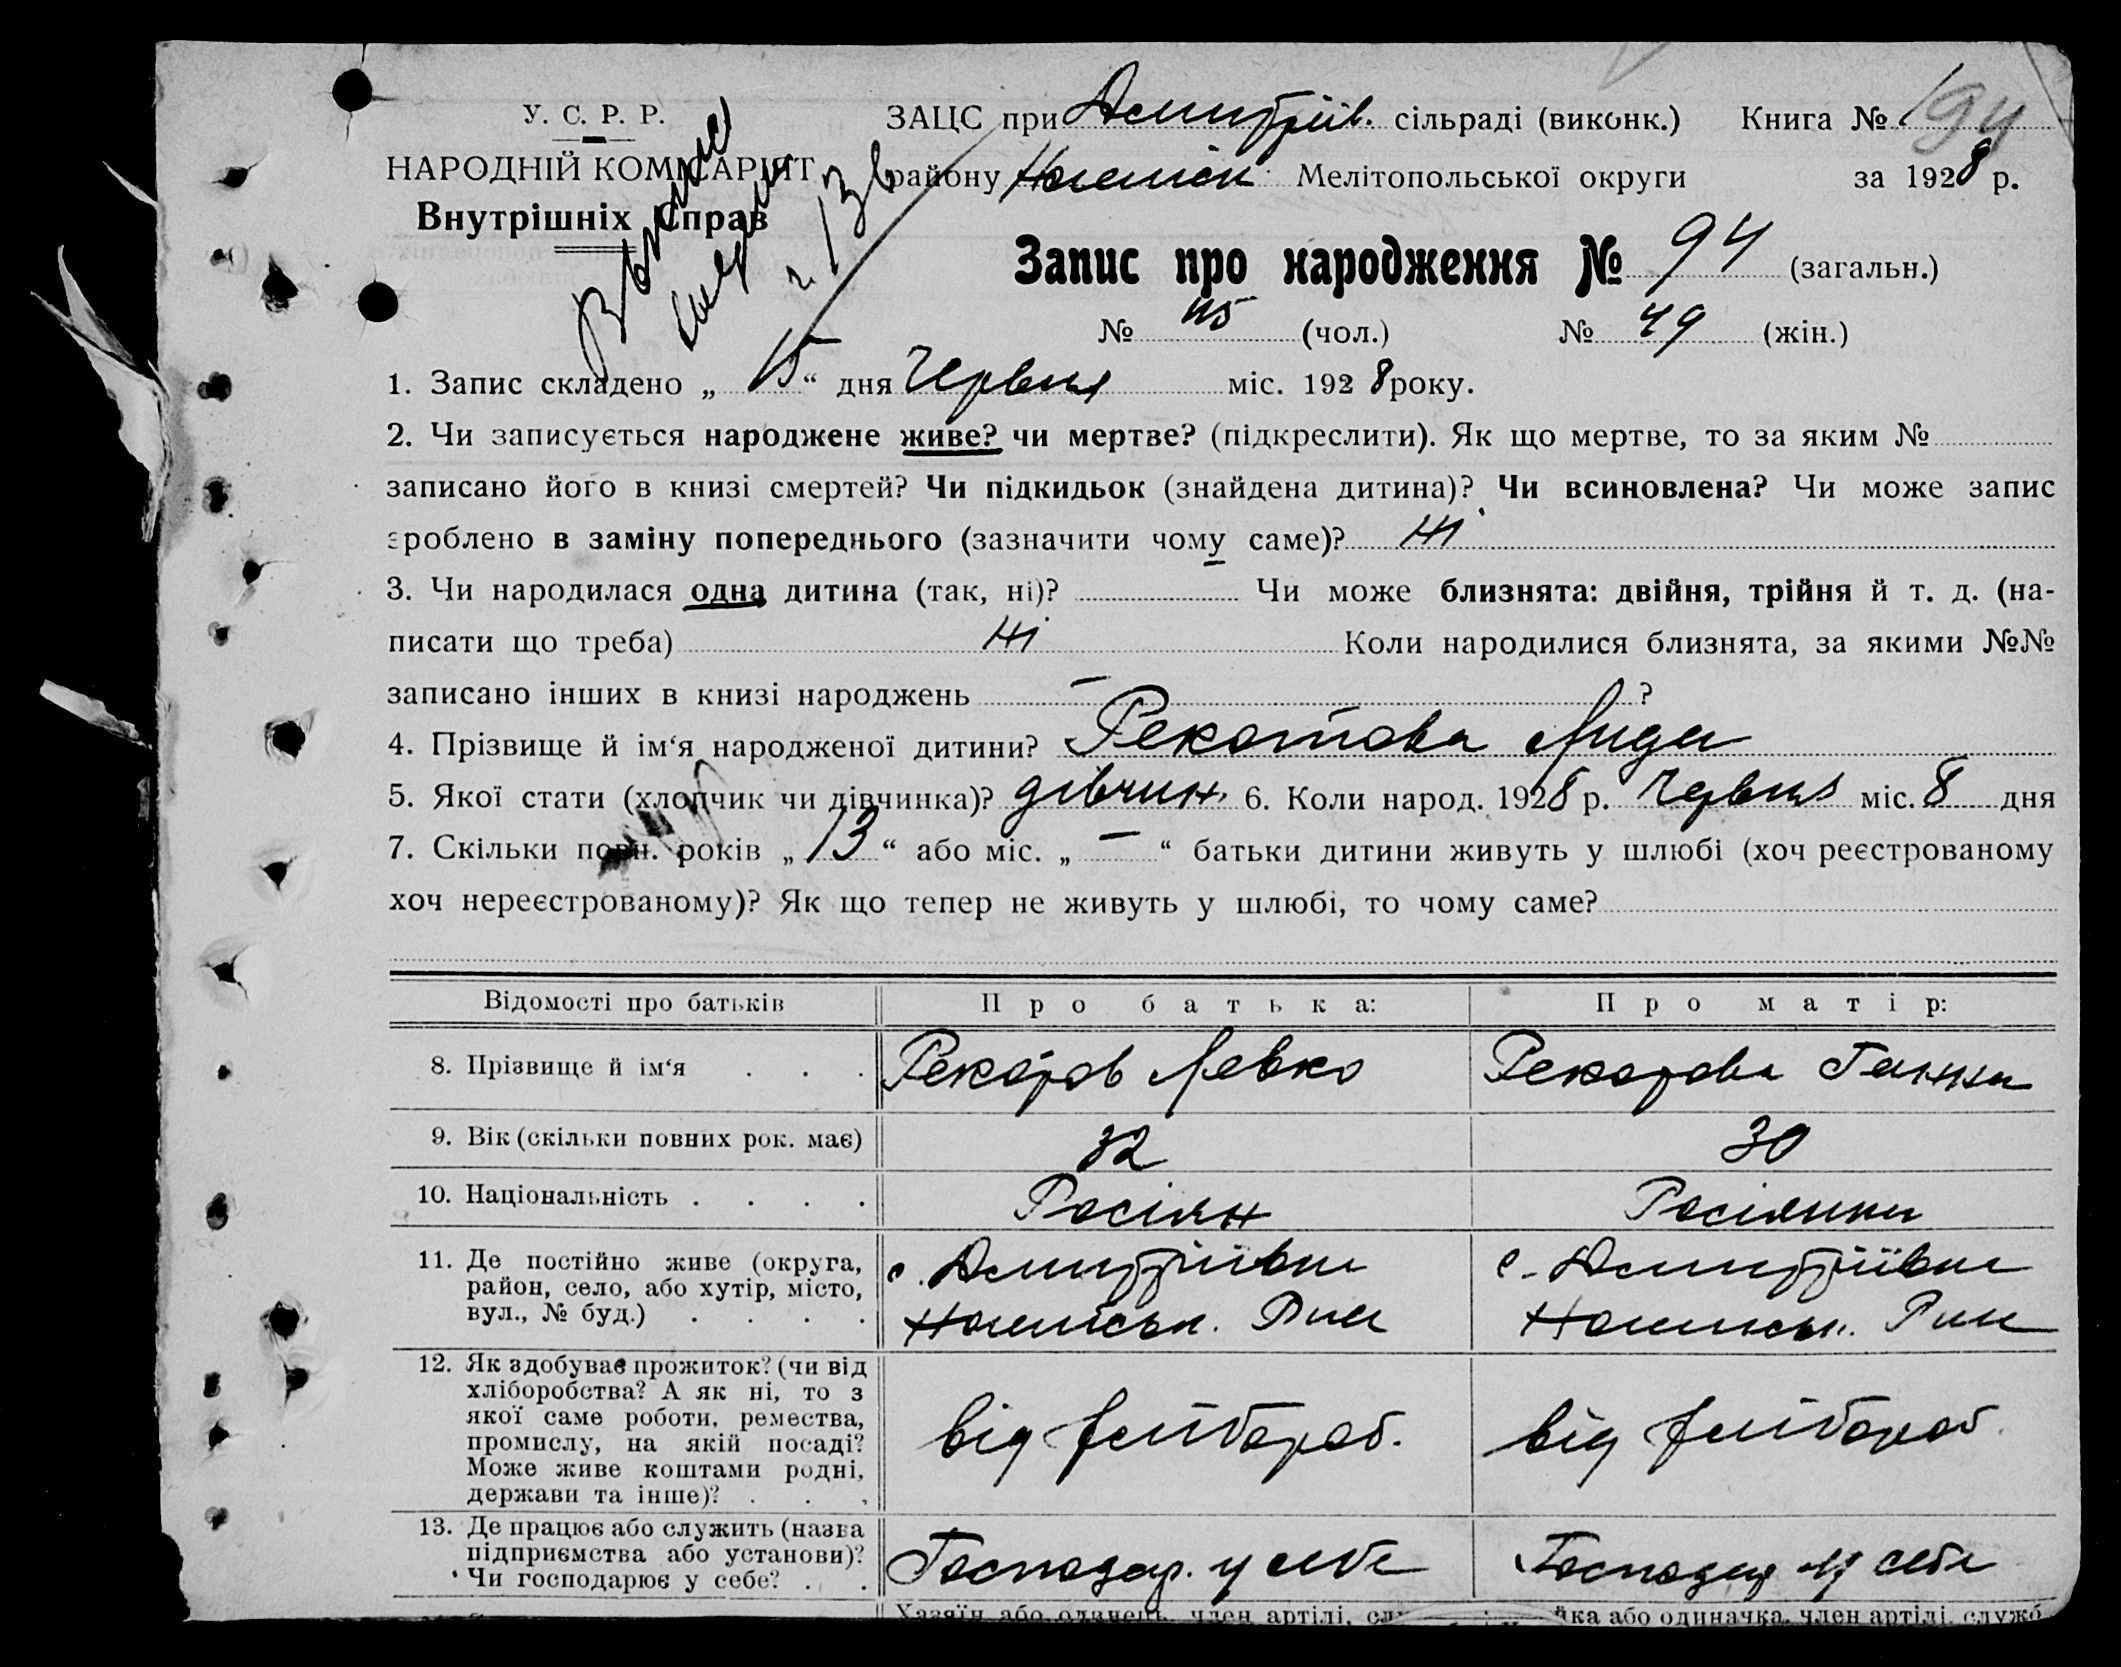 У. С. Р. Р.
НАРОДНІЙ КОМІСАРІЯТ
Внутрішніх Справ
ЗАЦС при Дмитріїв. сільраді (виконк.) Книга №
району Мелітопольської округи за 1928 р.
Запис про народження № 94 (загальн.)
№ 45 (чол.) № 49 (жін.)
1. Запис складено „ 15 “ дня Червня міс. 1928 року.
2. Чи записується народжене живе? чи мертве? (підкреслити). Як що мертве, то за яким №
записано його в книзі смертей? Чи підкидьок (знайдена дитина)? Чи всиновлена? Чи може запис
зроблено в заміну попереднього (зазначити чому саме)? Ні
3. Чи народилася одна дитина (так, ні)? Чи може близнята: двійня, трійня й т. д. (на-
писати що треба) Ні Коли народилися близнята, за якими №№
записано інших в книзі народжень — ?
4. Прізвище й ім‘я народженої дитини? Рекотова Лида
5. Якої стати (хлопчик чи дівчинка)? дівчин. 6. Коли народ. 1928 р. Червня міс. 8 дня
7. Скільки повн. років „ 13 “ або міс. „ — “ батьки дитини живуть у шлюбі (хоч реєстрованому
хоч нереєстрованому)? Як що тепер не живуть у шлюбі, то чому саме?
Відомості про батьків Про батька: Про матір:
8. Прізвище й ім‘я . . . Рекотов Левко Рекотова Ганна
9. Вік (скільки повних рок. має) 32 30
10. Національність . . . . Росіян Росіянка
11. Де постійно живе (округа,
район, село, або хутір, місто,
вул., № буд.) . . . .
с. Дмитріївка
с. Дмитріївка
12. Як здобуває прожиток? (чи від
хліборобства? А як ні, то з
якої саме роботи, ремества,
промислу, на якій посаді?
Може живе коштами родні,
держави та інше)? . . .
від хлібороб. від хлібороб.
13. Де працює або служить (назва
підприємства або установи)?
Чи господарює у себе? . .
Господар. у себе Господар у себе
Хазяїн або одинець, член артілі, або одиначка, член артілі, служб.